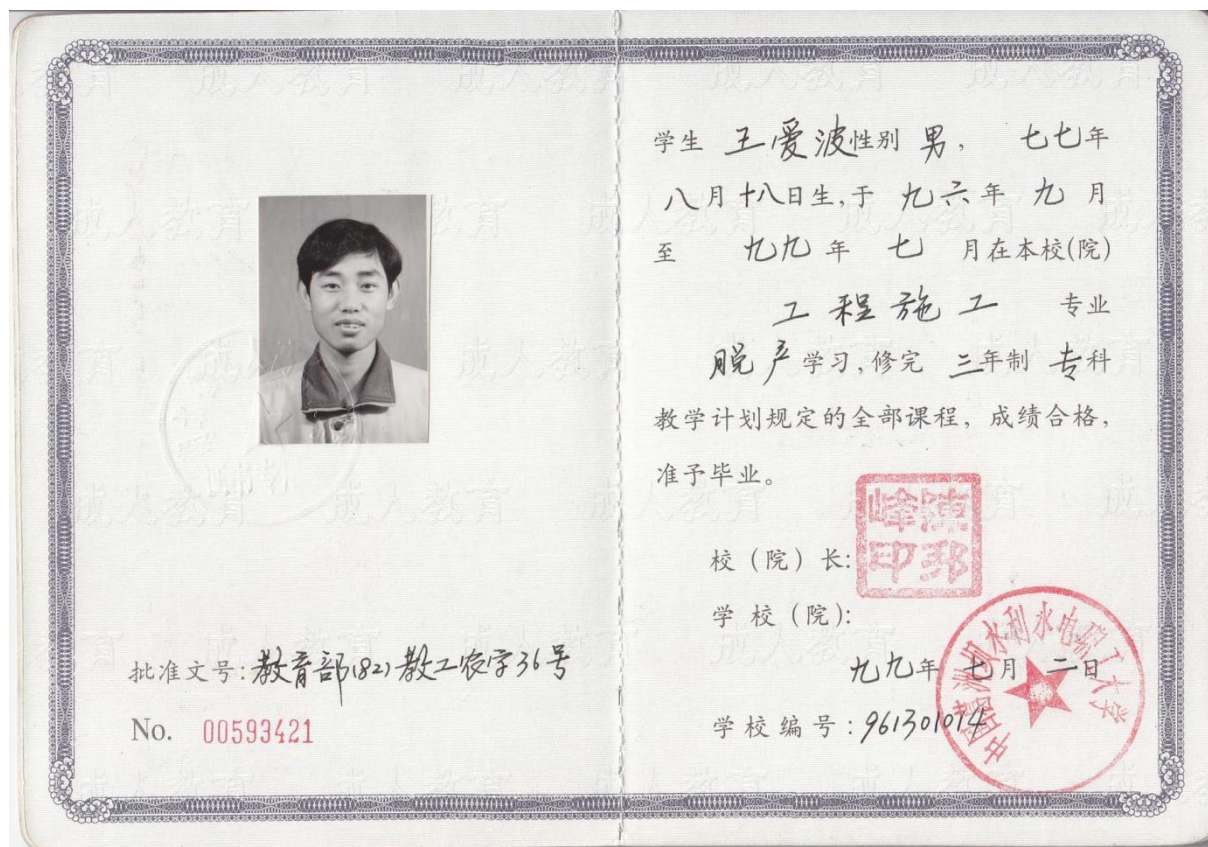 批准文号:教育部(82)教工农字36号
No. 00593421
学生 王爱波 性别 男, 七七年
八月十八日生,于 九六年 九月
至 九九年 七 月在本校(院)
工程施工 专业
脱产学习,修完 三年制 专科
教学计划规定的全部课程, 成绩合格,
准予毕业。
校(院)长:
陈邦峰印
学校(院):
葛洲坝水利水电职工大学
九九年 七月 二日
学校编号:961301014
成人教育